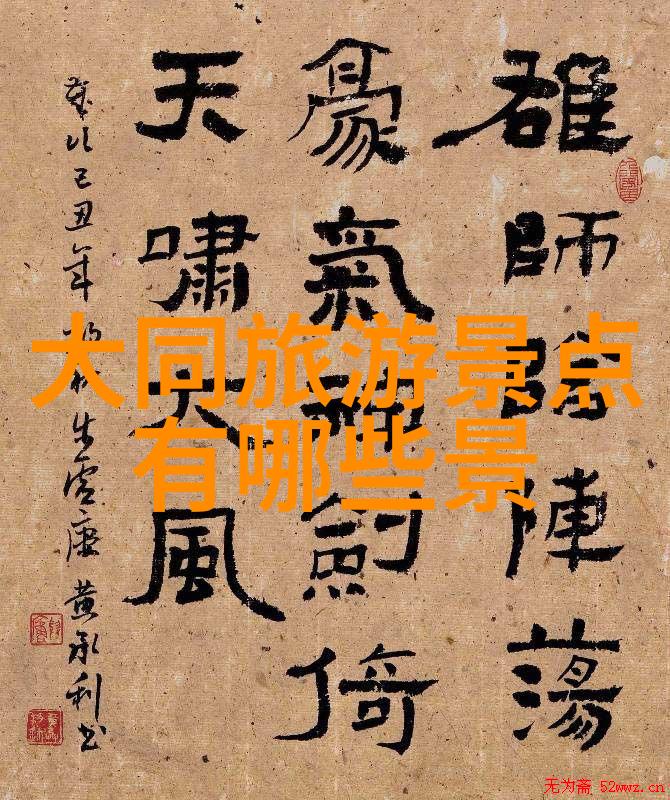 大同旅游景点
有哪些景
雄師陣蕩
豪氣劍倚
天嘯大風
歲次己丑年 黄承利书
无为斋 52wwz.cn